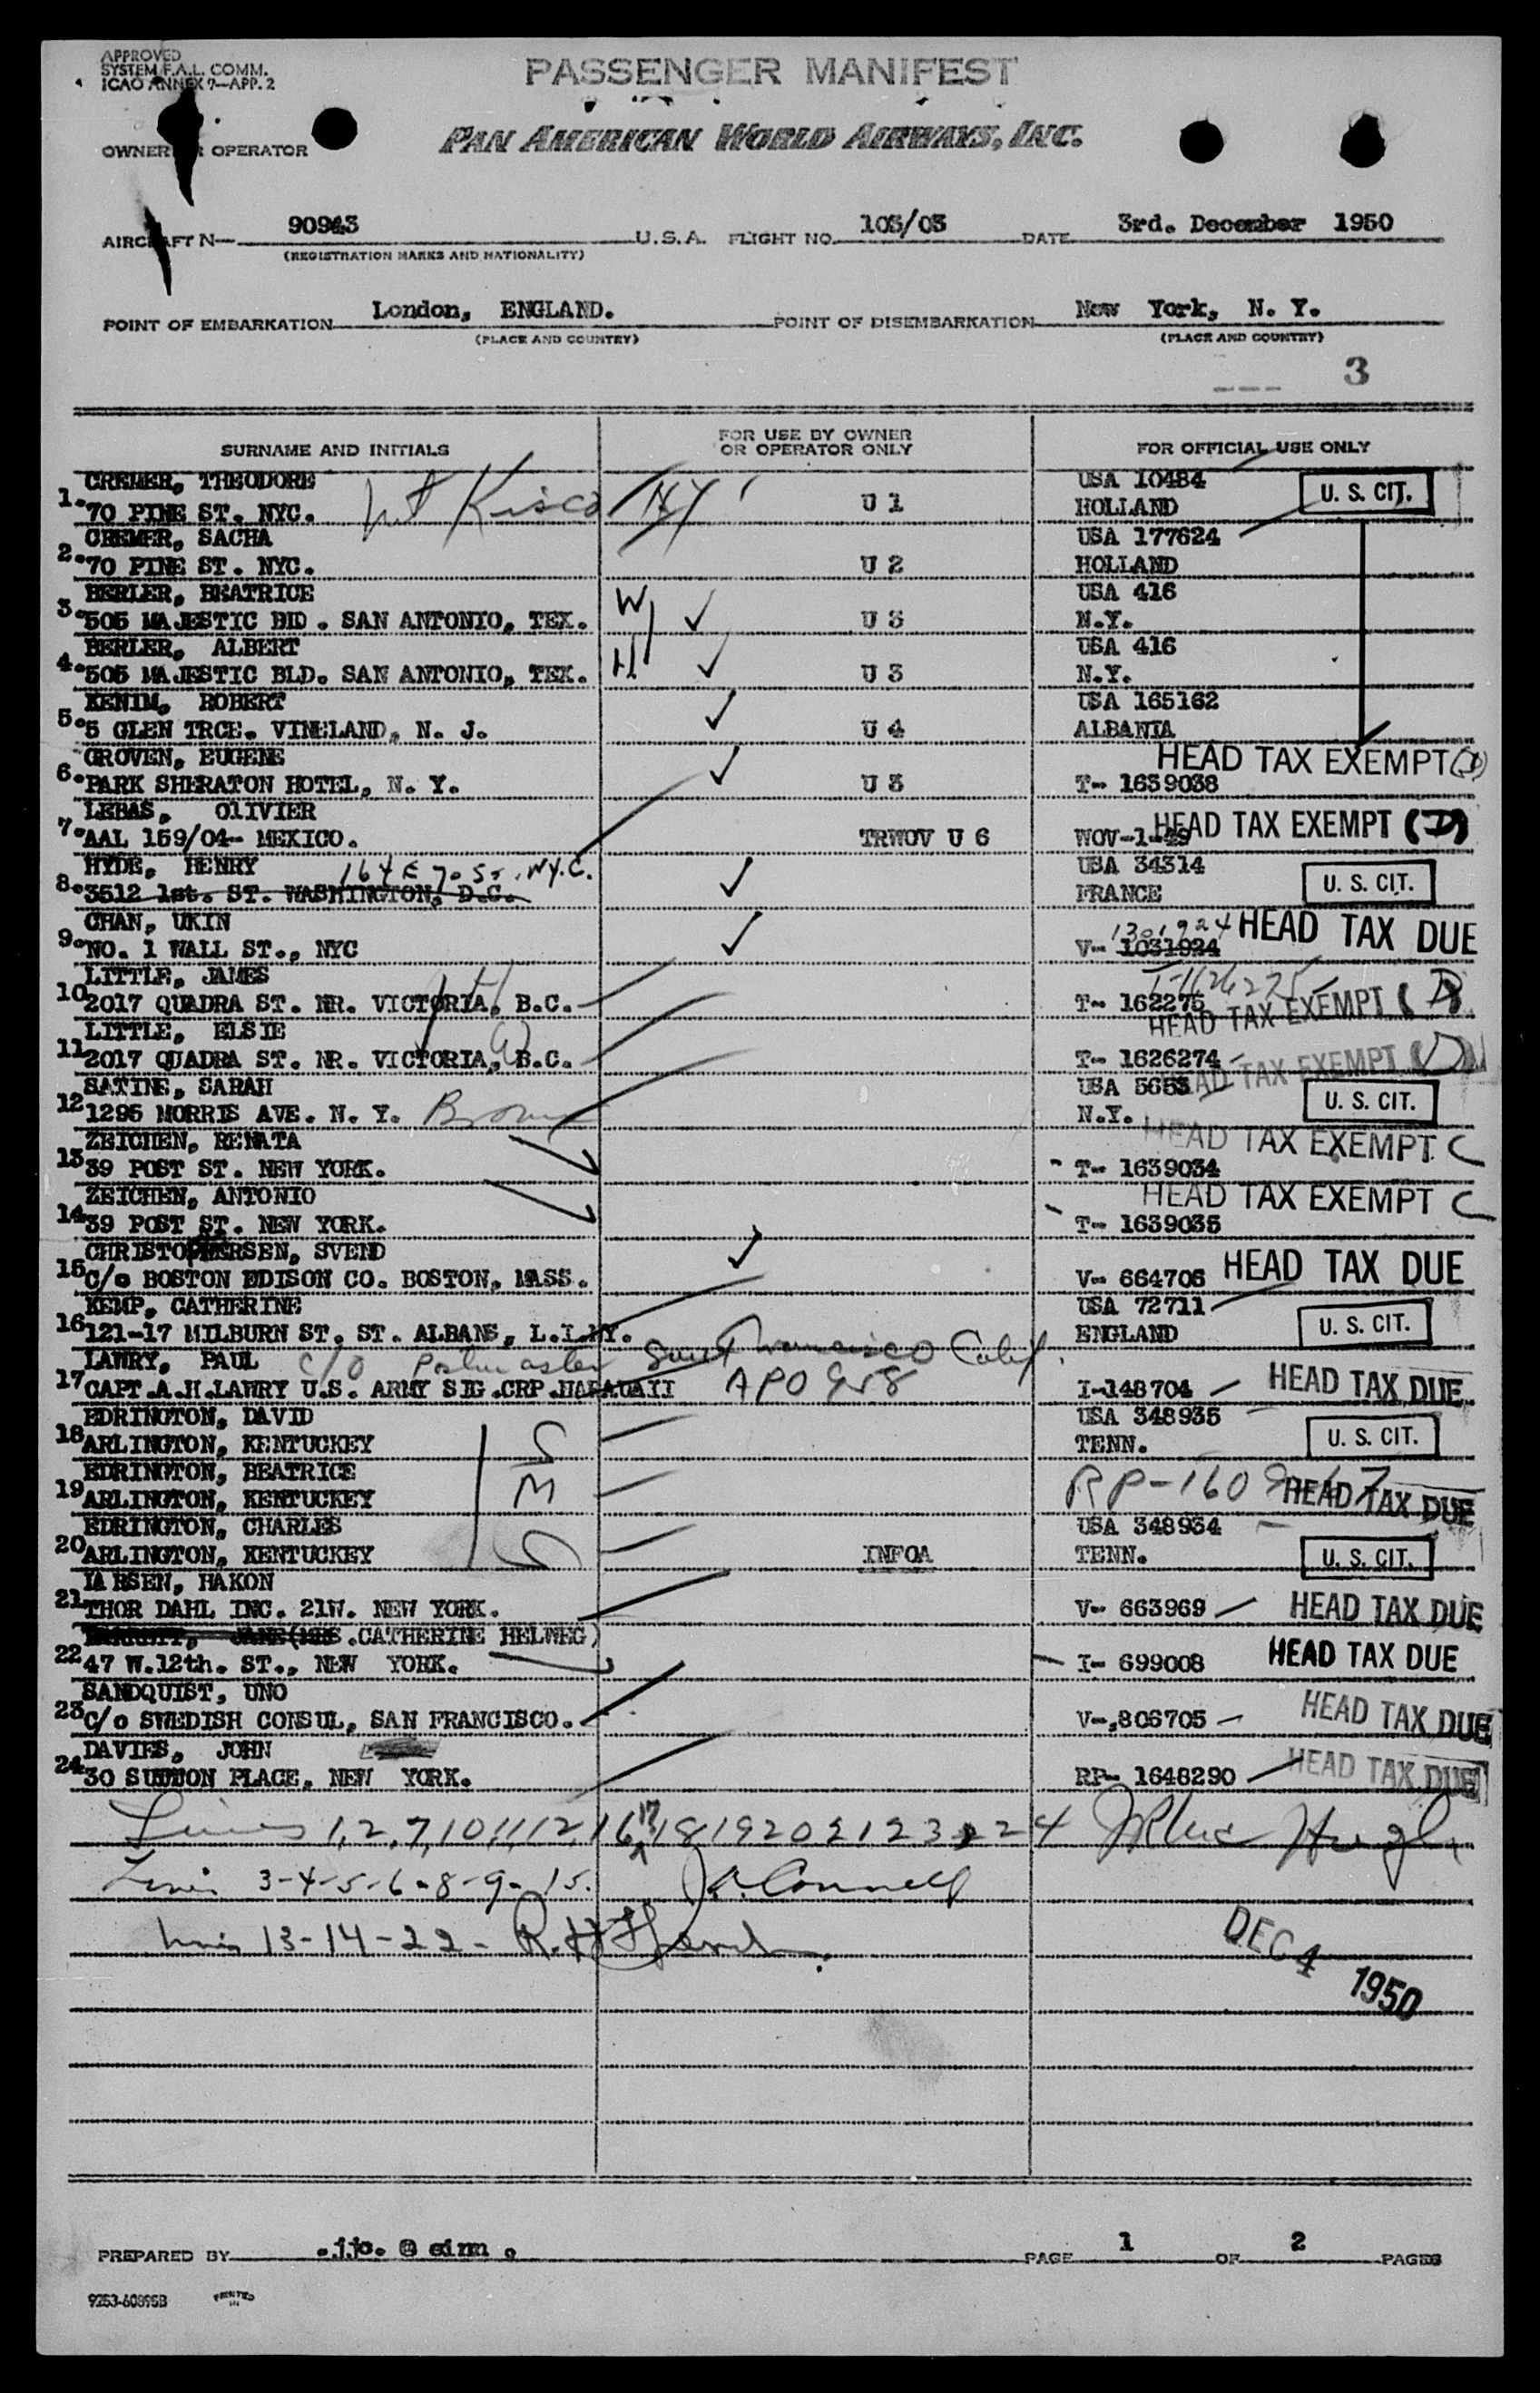 APPROVED
SYSTEM F.A.L. COMM.
ICAO ANNEX 9—APP. 2
PASSENGER MANIFEST
OWNER OR OPERATOR
PAN AMERICAN WORLD AIRWAYS, INC.
AIRCRAFT N— 90943 U.S.A. FLIGHT NO. 103/03 DATE 3rd. December 1950
(REGISTRATION MARKS AND NATIONALITY)
POINT OF EMBARKATION London, ENGLAND. POINT OF DISEMBARKATION New York, N. Y.
(PLACE AND COUNTRY) (PLACE AND COUNTRY)
3
SURNAME AND INITIALS FOR USE BY OWNER OR OPERATOR ONLY FOR OFFICIAL USE ONLY
CREMER, THEODORE USA 10484
1. 70 PINE ST. NYC. Mt Kisco NY U 1 HOLLAND U. S. CIT.
CREMER, SACHA USA 177624
2. 70 PINE ST. NYC. U 2 HOLLAND
BERLER, BEATRICE USA 416
3. 505 MAJESTIC BID . SAN ANTONIO, TEX. W U 3 N.Y.
BERLER, ALBERT USA 416
4. 505 MAJESTIC BLD. SAN ANTONIO, TEX. H U 3 N.Y.
KENIM, ROBERT USA 165162
5. 5 GLEN TRCE. VINELAND, N. J. U 4 ALBANIA
GROVEN, EUGENE HEAD TAX EXEMPT
6. PARK SHERATON HOTEL, N. Y. U 3 T- 1639038
LEBAS, OlIVIER
7. AAL 159/04- MEXICO. TRWOV U 6 WOV-1-49 HEAD TAX EXEMPT (D)
HYDE, HENRY 164 E 70 St. NYC. USA 34314
8. 3512 1st. ST. WASHINGTON, D.C. FRANCE U. S. CIT.
CHAN, UKIN 1301924 HEAD TAX DUE
9. NO. 1 WALL ST., NYC V- 1031924
LITTLE, JAMES T-1626275
10 2017 QUADRA ST. NR. VICTORIA, B.C. H T- 162275 HEAD TAX EXEMPT (D)
LITTLE, ELSIE
11 2017 QUADRA ST. NR. VICTORIA, B.C. W T- 1626274 HEAD TAX EXEMPT (D)
SATINE, SARAH USA 5653
12 1295 MORRIS AVE. N. Y. Bronx N.Y. U. S. CIT.
ZEICHEN, RENATA HEAD TAX EXEMPT C
13 39 POST ST. NEW YORK. T- 1639034
ZEICHEN, ANTONIO HEAD TAX EXEMPT C
14 39 POST ST. NEW YORK. T- 1639035
CHRISTOPHERSEN, SVEND
15 C/o BOSTON EDISON CO. BOSTON, MASS. V- 664706 HEAD TAX DUE
KEMP, CATHERINE USA 72711
16 121-17 MILBURN ST. ST. ALBANS, L.I.NY. ENGLAND U. S. CIT.
LAWRY, PAUL C/O Postmaster San Francisco Calif.
17 CAPT.A.H.LAWRY U.S. ARMY SIG.CRP. APO 958 I-148704 HEAD TAX DUE
EDRINGTON, DAVID USA 348935
18 ARLINGTON, KENTUCKY S TENN. U. S. CIT.
EDRINGTON, BEATRICE
19 ARLINGTON, KENTUCKEY M HEAD TAX DUE
EDRINGTON, CHARLES USA 348934
20 ARLINGTON, KENTUCKEY INFOA TENN. U. S. CIT.
LARSEN, HAKON
21 THOR DAHL INC. 21W. NEW YORK. V- 663969 HEAD TAX DUE
JANE (MRS .CATHERINE HELWEG)
22 47 W.12th. ST., NEW YORK. I- 699008 HEAD TAX DUE
SANDQUIST, UNO
23 C/o SWEDISH CONSUL, SAN FRANCISCO. V-,806705 HEAD TAX DUE
DAVIES, JOHN
24 30 SUTTON PLACE, NEW YORK. RP- 1648290 HEAD TAX DUE
Lines 1,2,7,10,11,12,16,17,18,19,20,21,23,24
Lines 3-4-5-6-8-9-15.
Lines 13-14-22-
DEC 4 1950
PREPARED BY PAGE 1 OF 2 PAGES
9253-60895B PRINTED IN